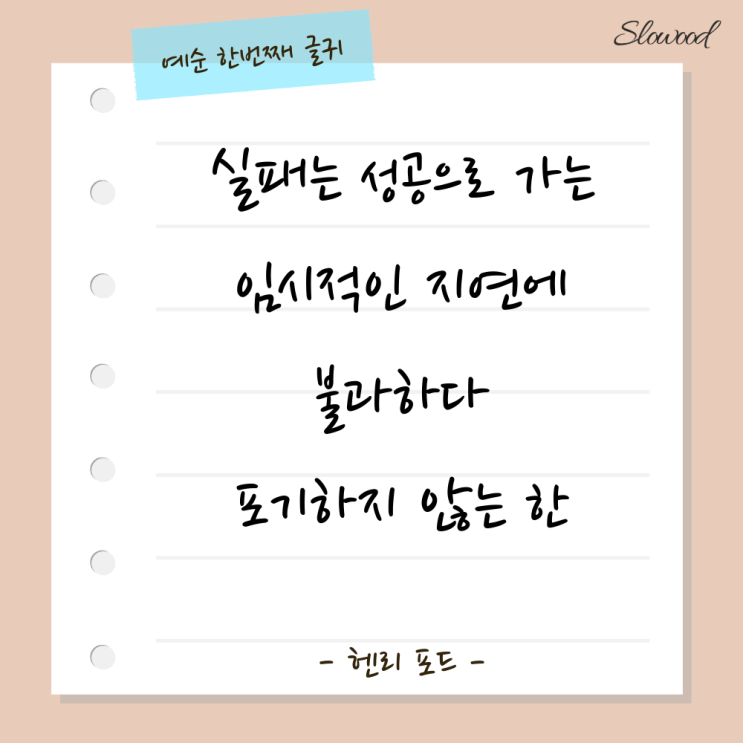 Slowood
예순 한번째 글귀
실패는 성공으로 가는
임시적인 지연에
불과하다
포기하지 않는 한
- 헨리 포드 -